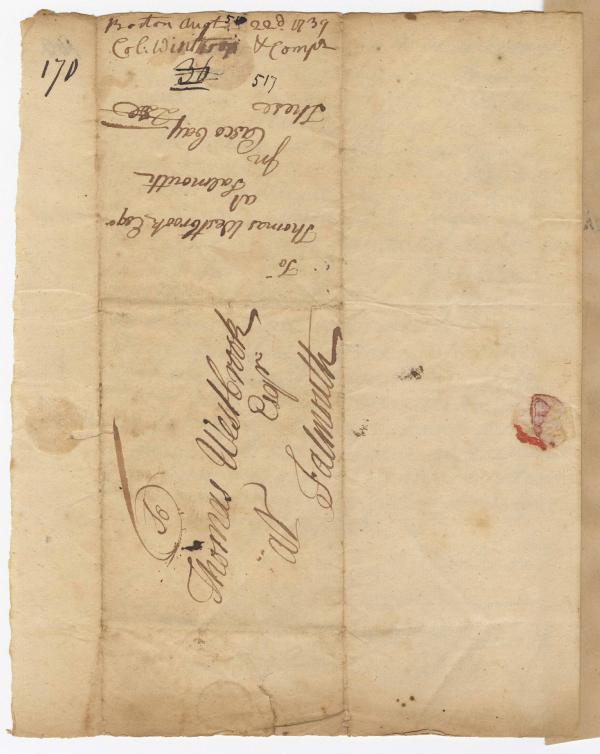 Boston Augt 22d 1739
Col: Winthrop & Comps
170
517
To
Thomas Westbrook Esqr
at
Falmouth
In
Casco bay
These
To
Thomas Westbrook
Esqr
At Falmouth